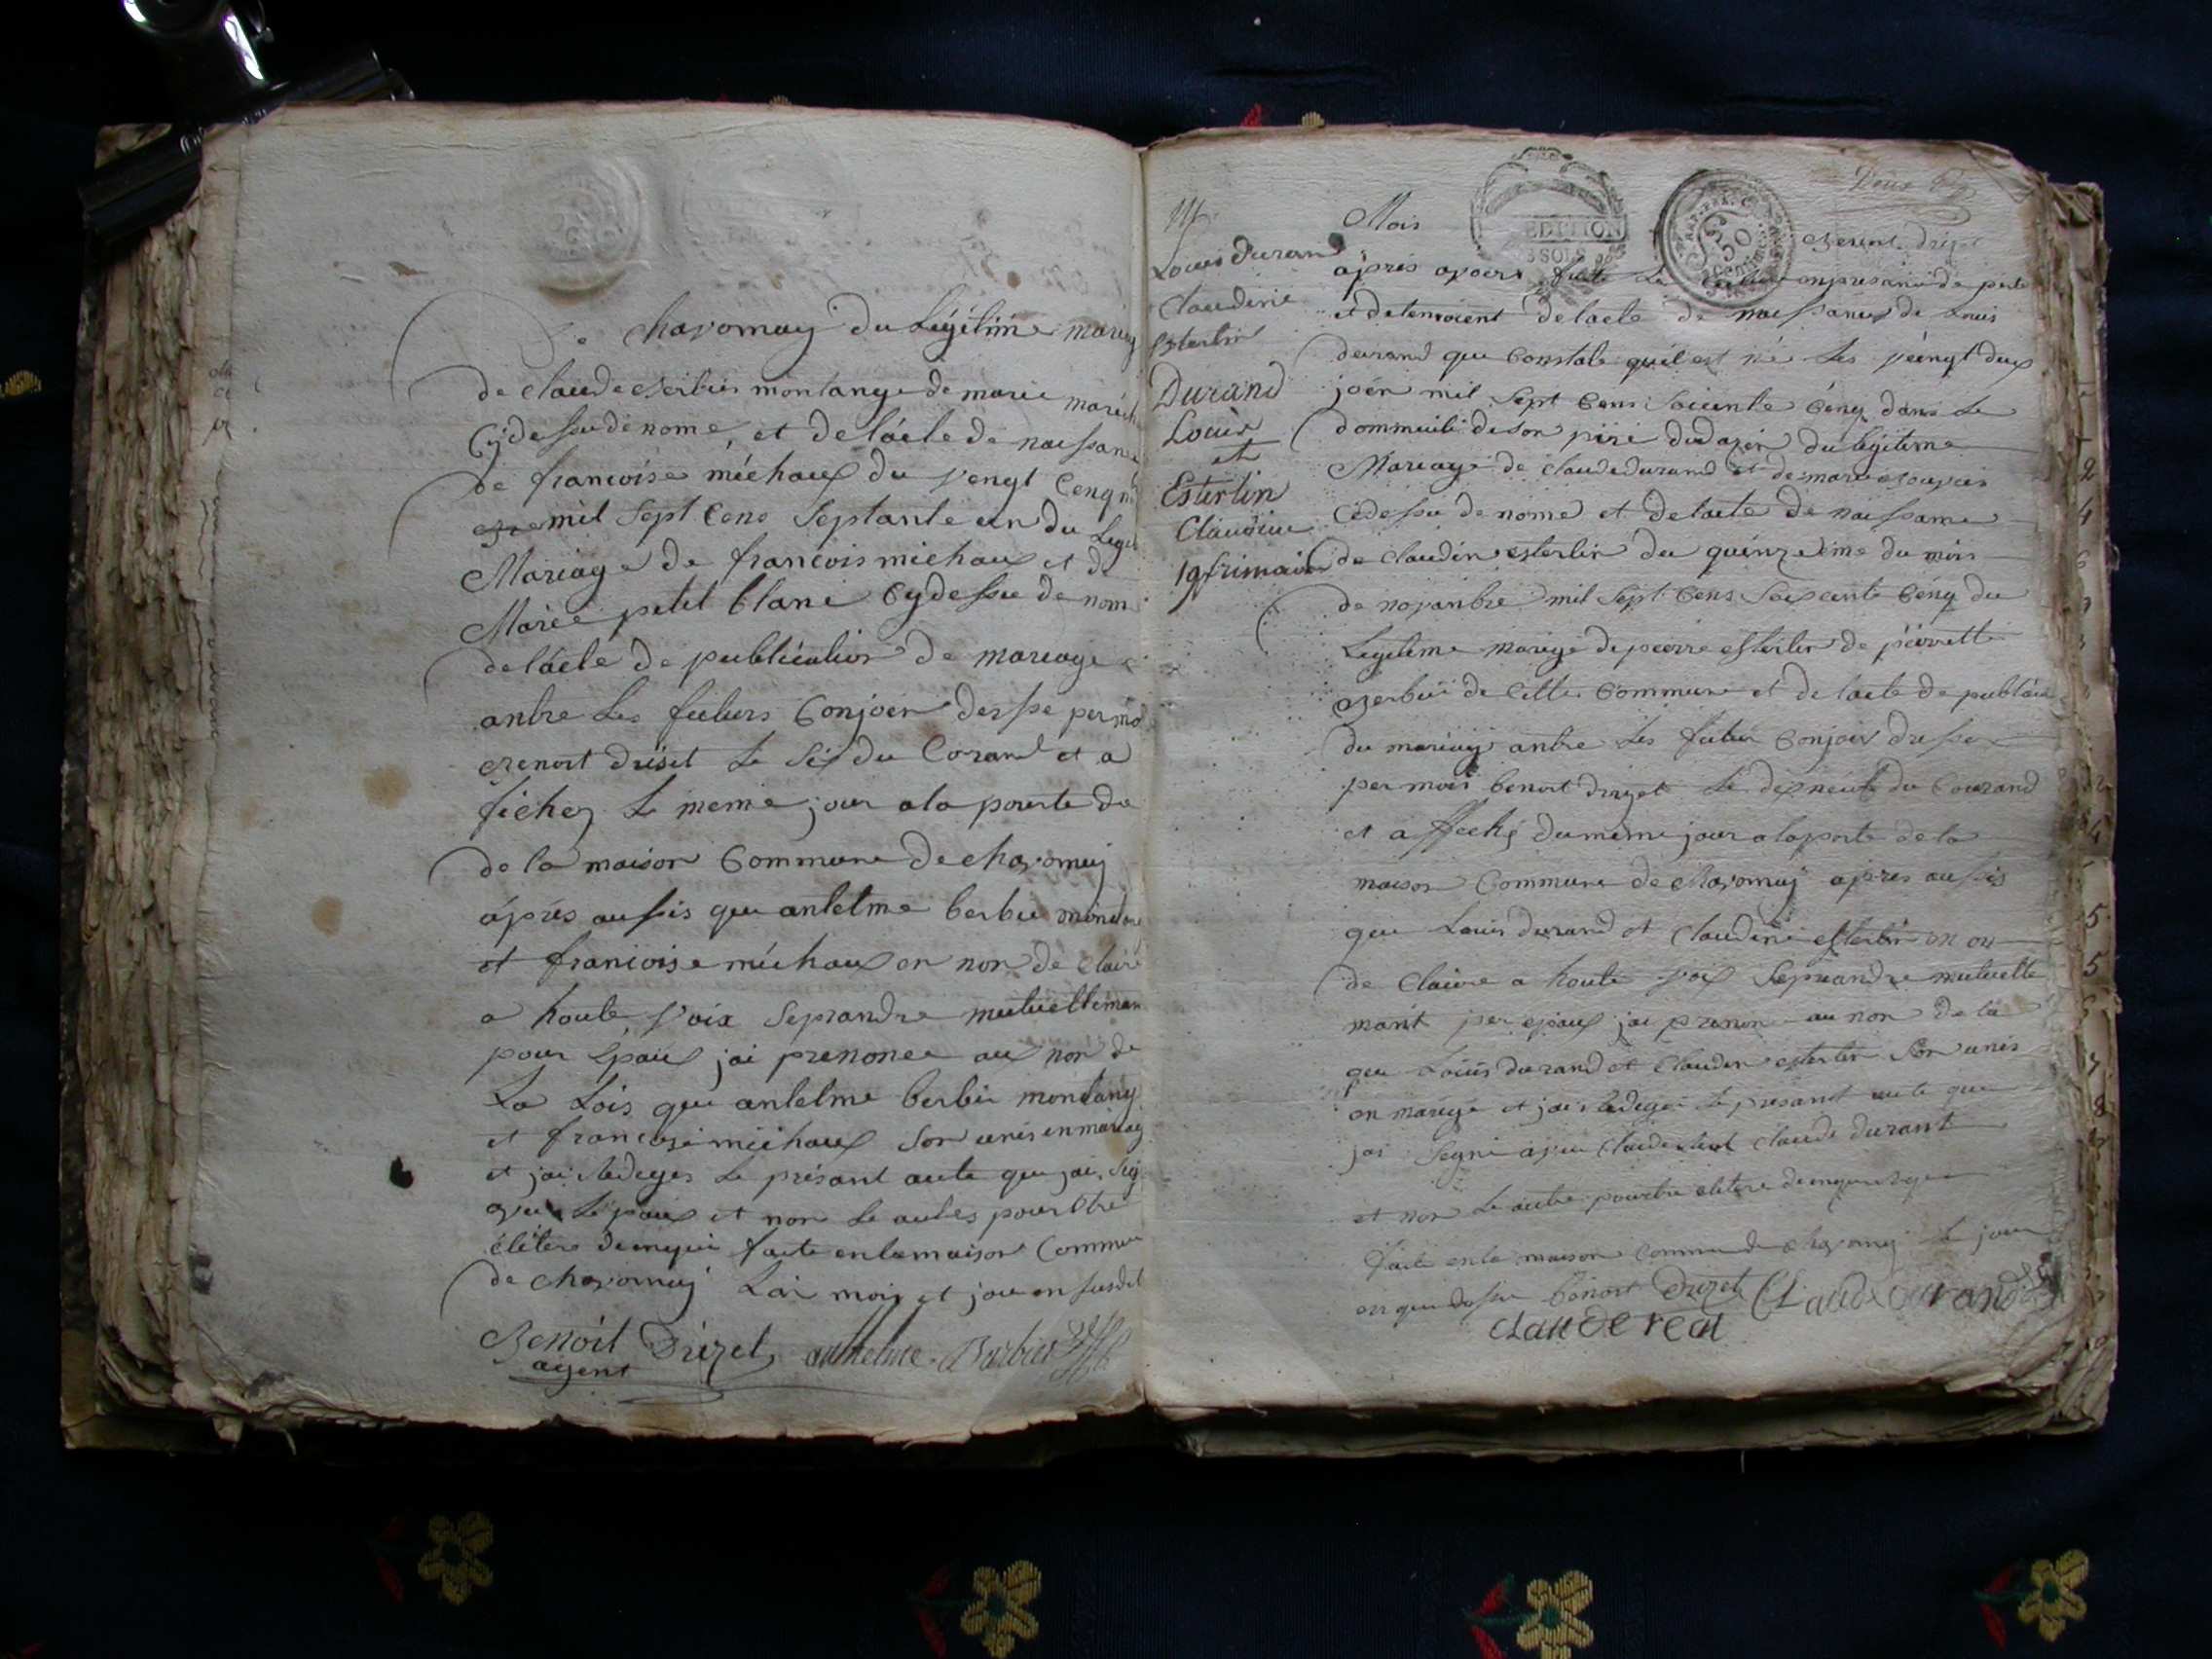 De chavornay du Légitime mariag
de claude berbier montange de marie maréch
Cydessu de nome, et de lacte de naissance
de francoise michaux du vengt Cenq
mil Sept Cens Septante un du Legit
Mariage de francois michaux et de
Marie petit blanc Cydessu de nome
de lacte de publication de mariage
antre Les futurs Conjoin desse per moi
benoit driset Le Six du Corand et a
ficher Le meme jour a la pourte de
de la maison Commune de chavornuy
aprés aussis que antelme berbie montange
et francoise michaux on non de claire
a houte voix Seprandre mutuelleman
pour Epoux jai prenonce aux non de
La Lois que antelme berbier montang
et francoise michaux Son unis en mariag
et jai Rediges Le présant acte que jai Sig
avec Lepoux et non Le autres pour Etre
élitere denquis faite en la maison Commu
de chavornuy Lan mois et jour en susdit
Benoit Drizet anthelme Barbier
agent
Louis durand
claudine
Esterlin
Durand
Louis
et
Esterlin
Claudine
19 frimaire
EDITION
50
Mois benoit drizet
apres avoire faite Le
et de lacte de naissance de Louis
durand que Constate quil est né Les vengt deux
join mil Sept Cens Soicente Cenq dans Le
dommicile de son pere du Légiteme
Mariage de claude durand et de marie
Cidessu de nome et de lacte de naissance
de claudin esterlin du quinzieme du mois
de novanbre mil Sept Cens Soixcente Cenq du
Legiteme mariage de pierre esterlin de pierrette
berbié de Cette Commune et de lacte de publica
du mariag antre Les futur Conjoin dresse
per mois benoit drizet Le dix neuve du Courand
et affiché du meme jour a la porte de la
maison Commune de chavornuy apres aussis
que Louis durand et claudine esterlin on on
de claire a houte voix Seprandre mutuelle
mant per epoux jai prenonce au non de la
que Louis durand et claudin esterlin Son unis
en mariage et jai Rediger Le présant acte que
jai Segné avec claude claude durant
et non Le autre pour Etre elitere denquis
faite en la maison Commune de chavorny Le jour
en que dessu benoit Drizet Claude durand
claude real